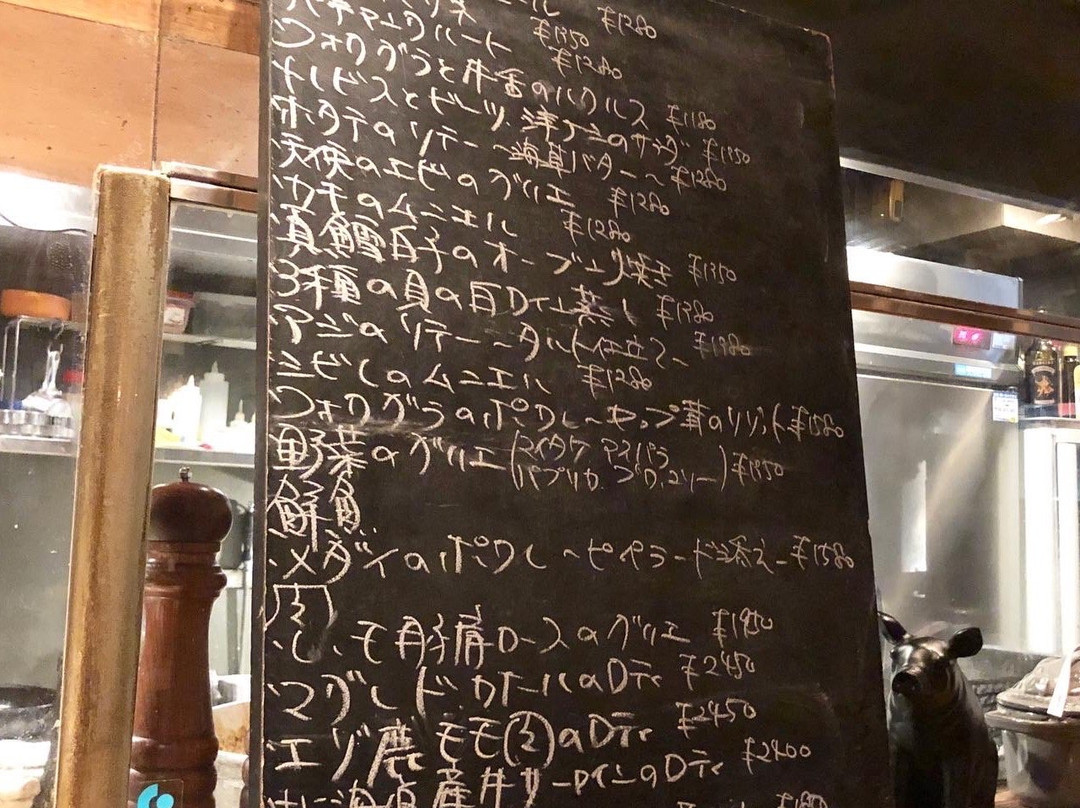 ¥1280
パテ ¥1350
フォワグラと牛舌の ¥1280
トレビスとビーツ、洋ナシのサラダ ¥1180
ホタテのソテー 〜海苔バター〜 ¥1350
天使のエビのグリエ ¥1280
カキのムニエル ¥1280
真鱈白子のオーブン焼き ¥1280
3種の貝の白ワイン蒸し ¥1350
アジのソテー 〜タルト仕立て〜 ¥1380
シビレのムニエル ¥1280
フォワグラのポワレ〜セップ茸のリゾット ¥1580
野菜のグリエ(マイタケ アスパラ
パプリカ、ブロッコリー) ¥1350
鮮魚
・メダイのポワレ 〜ピペラード添え〜 ¥1580
肉
豚肩ロースのグリエ ¥1950
・マグレ・ド・カナールのロティ ¥2450
・エゾ鹿モモ肉のロティ ¥2450
産牛サーロインのロティ ¥2400